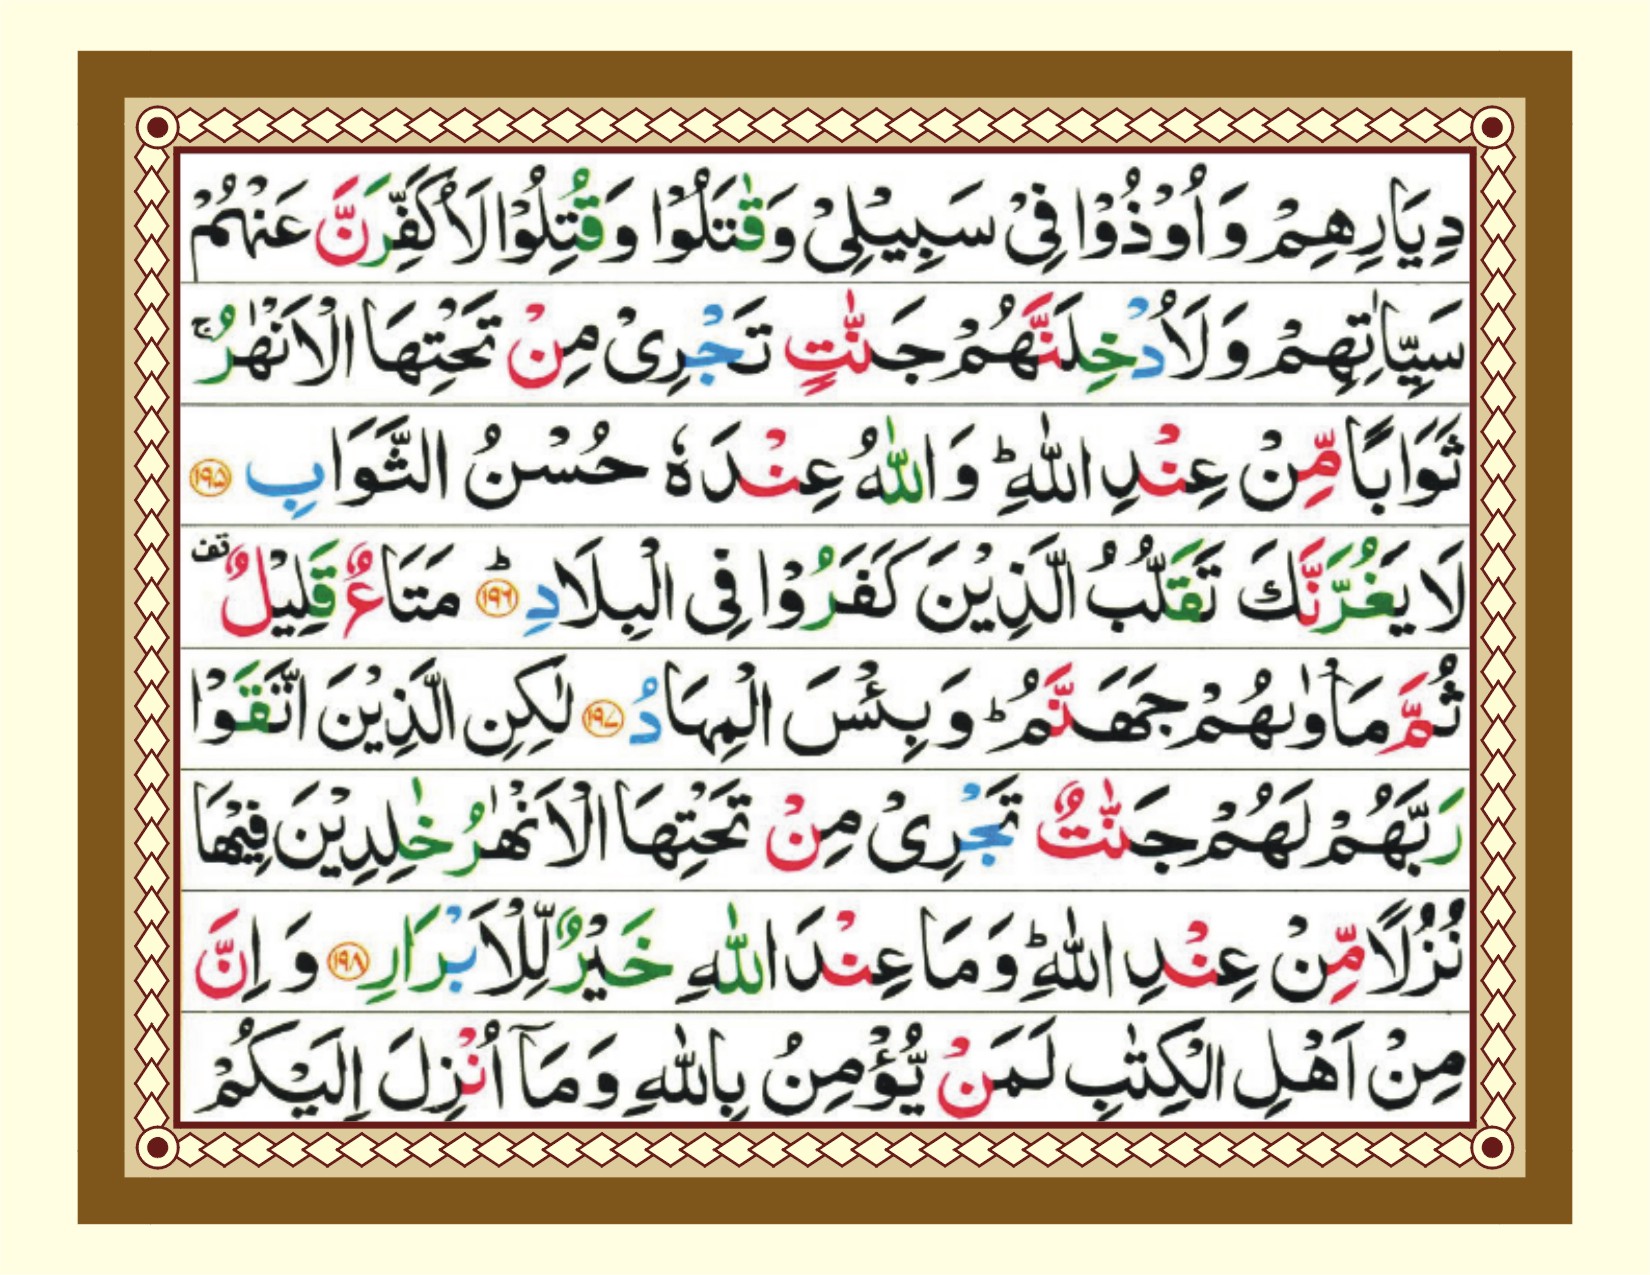 دِيَارِهِمْ وَ اُوْذُوْا فِيْ سَبِيْلِيْ وَقٰتَلُوْا وَقُتِلُوْا لَاُكَفِّرَنَّ عَنْهُمْ
سَيِّاٰتِهِمْ وَلَاُدْخِلَنَّهُمْ جَنّٰتٍ تَجْرِيْ مِنْ تَحْتِهَا الْاَنْهٰرُ ۚ
ثَوَابًا مِّنْ عِنْدِ اللّٰهِ ؕ وَ اللّٰهُ عِنْدَهٗ حُسْنُ الثَّوَابِ ۱۹۵
لَا يَغُرَّنَّكَ تَقَلُّبُ الَّذِيْنَ كَفَرُوْا فِى الْبِلَادِ ؕ ۱۹۶ مَتَاعٌ قَلِيْلٌ قف
ثُمَّ مَاْوٰىهُمْ جَهَنَّمُ ؕ وَ بِئْسَ الْمِهَادُ ۱۹۷ لٰكِنِ الَّذِيْنَ اتَّقَوْا
رَبَّهُمْ لَهُمْ جَنّٰتٌ تَجْرِيْ مِنْ تَحْتِهَا الْاَنْهٰرُ خٰلِدِيْنَ فِيْهَا
نُزُلًا مِّنْ عِنْدِ اللّٰهِ ؕ وَمَا عِنْدَ اللّٰهِ خَيْرٌ لِّلْاَبْرَارِ ۱۹۸ وَ اِنَّ
مِنْ اَهْلِ الْكِتٰبِ لَمَنْ يُّؤْمِنُ بِاللّٰهِ وَمَاۤ اُنْزِلَ اِلَيْكُمْ